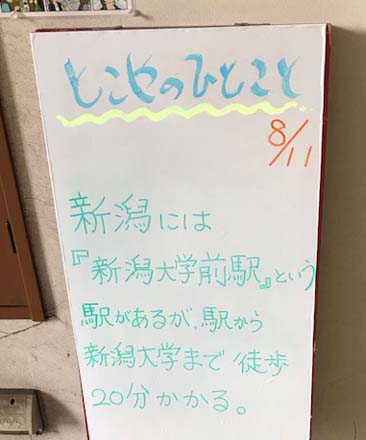 とこやのひとこと
8/11
新潟には
『新潟大学前駅』という
駅があるが、駅から
新潟大学まで徒歩
20分かかる。